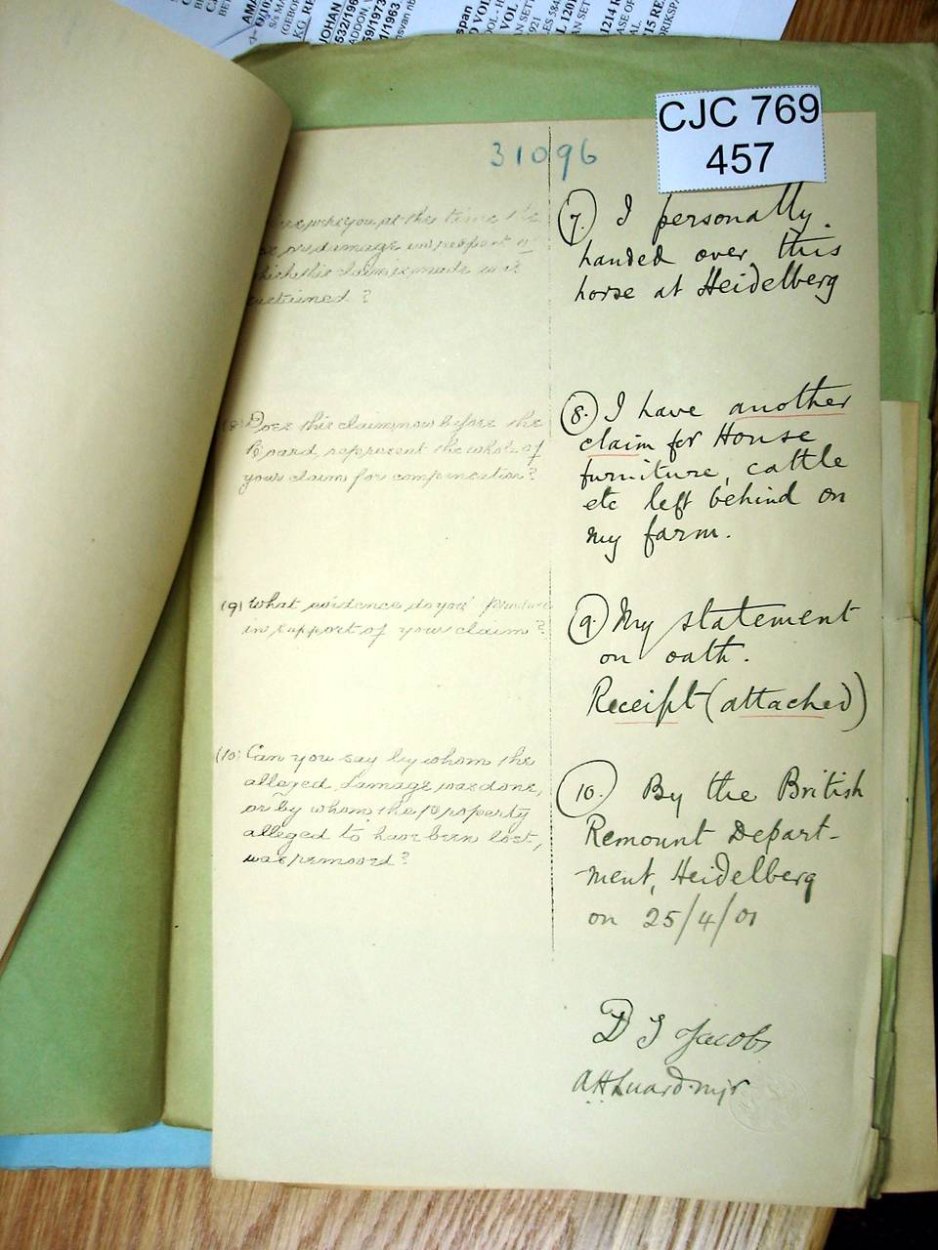 CJC 769
457
31096
were you at the time the
damage in respect of
which this claim is made was
sustained ?
(7.) I personally
handed over this
horse at Heidelberg
(8) Does this claim now before the
Board represent the whole of
your claim for compensation?
(8.) I have another
claim for House
furniture, cattle
etc left behind on
my farm.
(9) What evidence do you produce
in support of your claim?
(9.) My statement
on oath.
Receipt (attached)
(10) Can you say by whom the
alleged damage was done,
or by whom the property
alleged to have been lost,
was removed?
(10.) By the British
Remount Depart-
-ment, Heidelberg
on 25/4/01
D J Jacobs
AH Luard Mjr